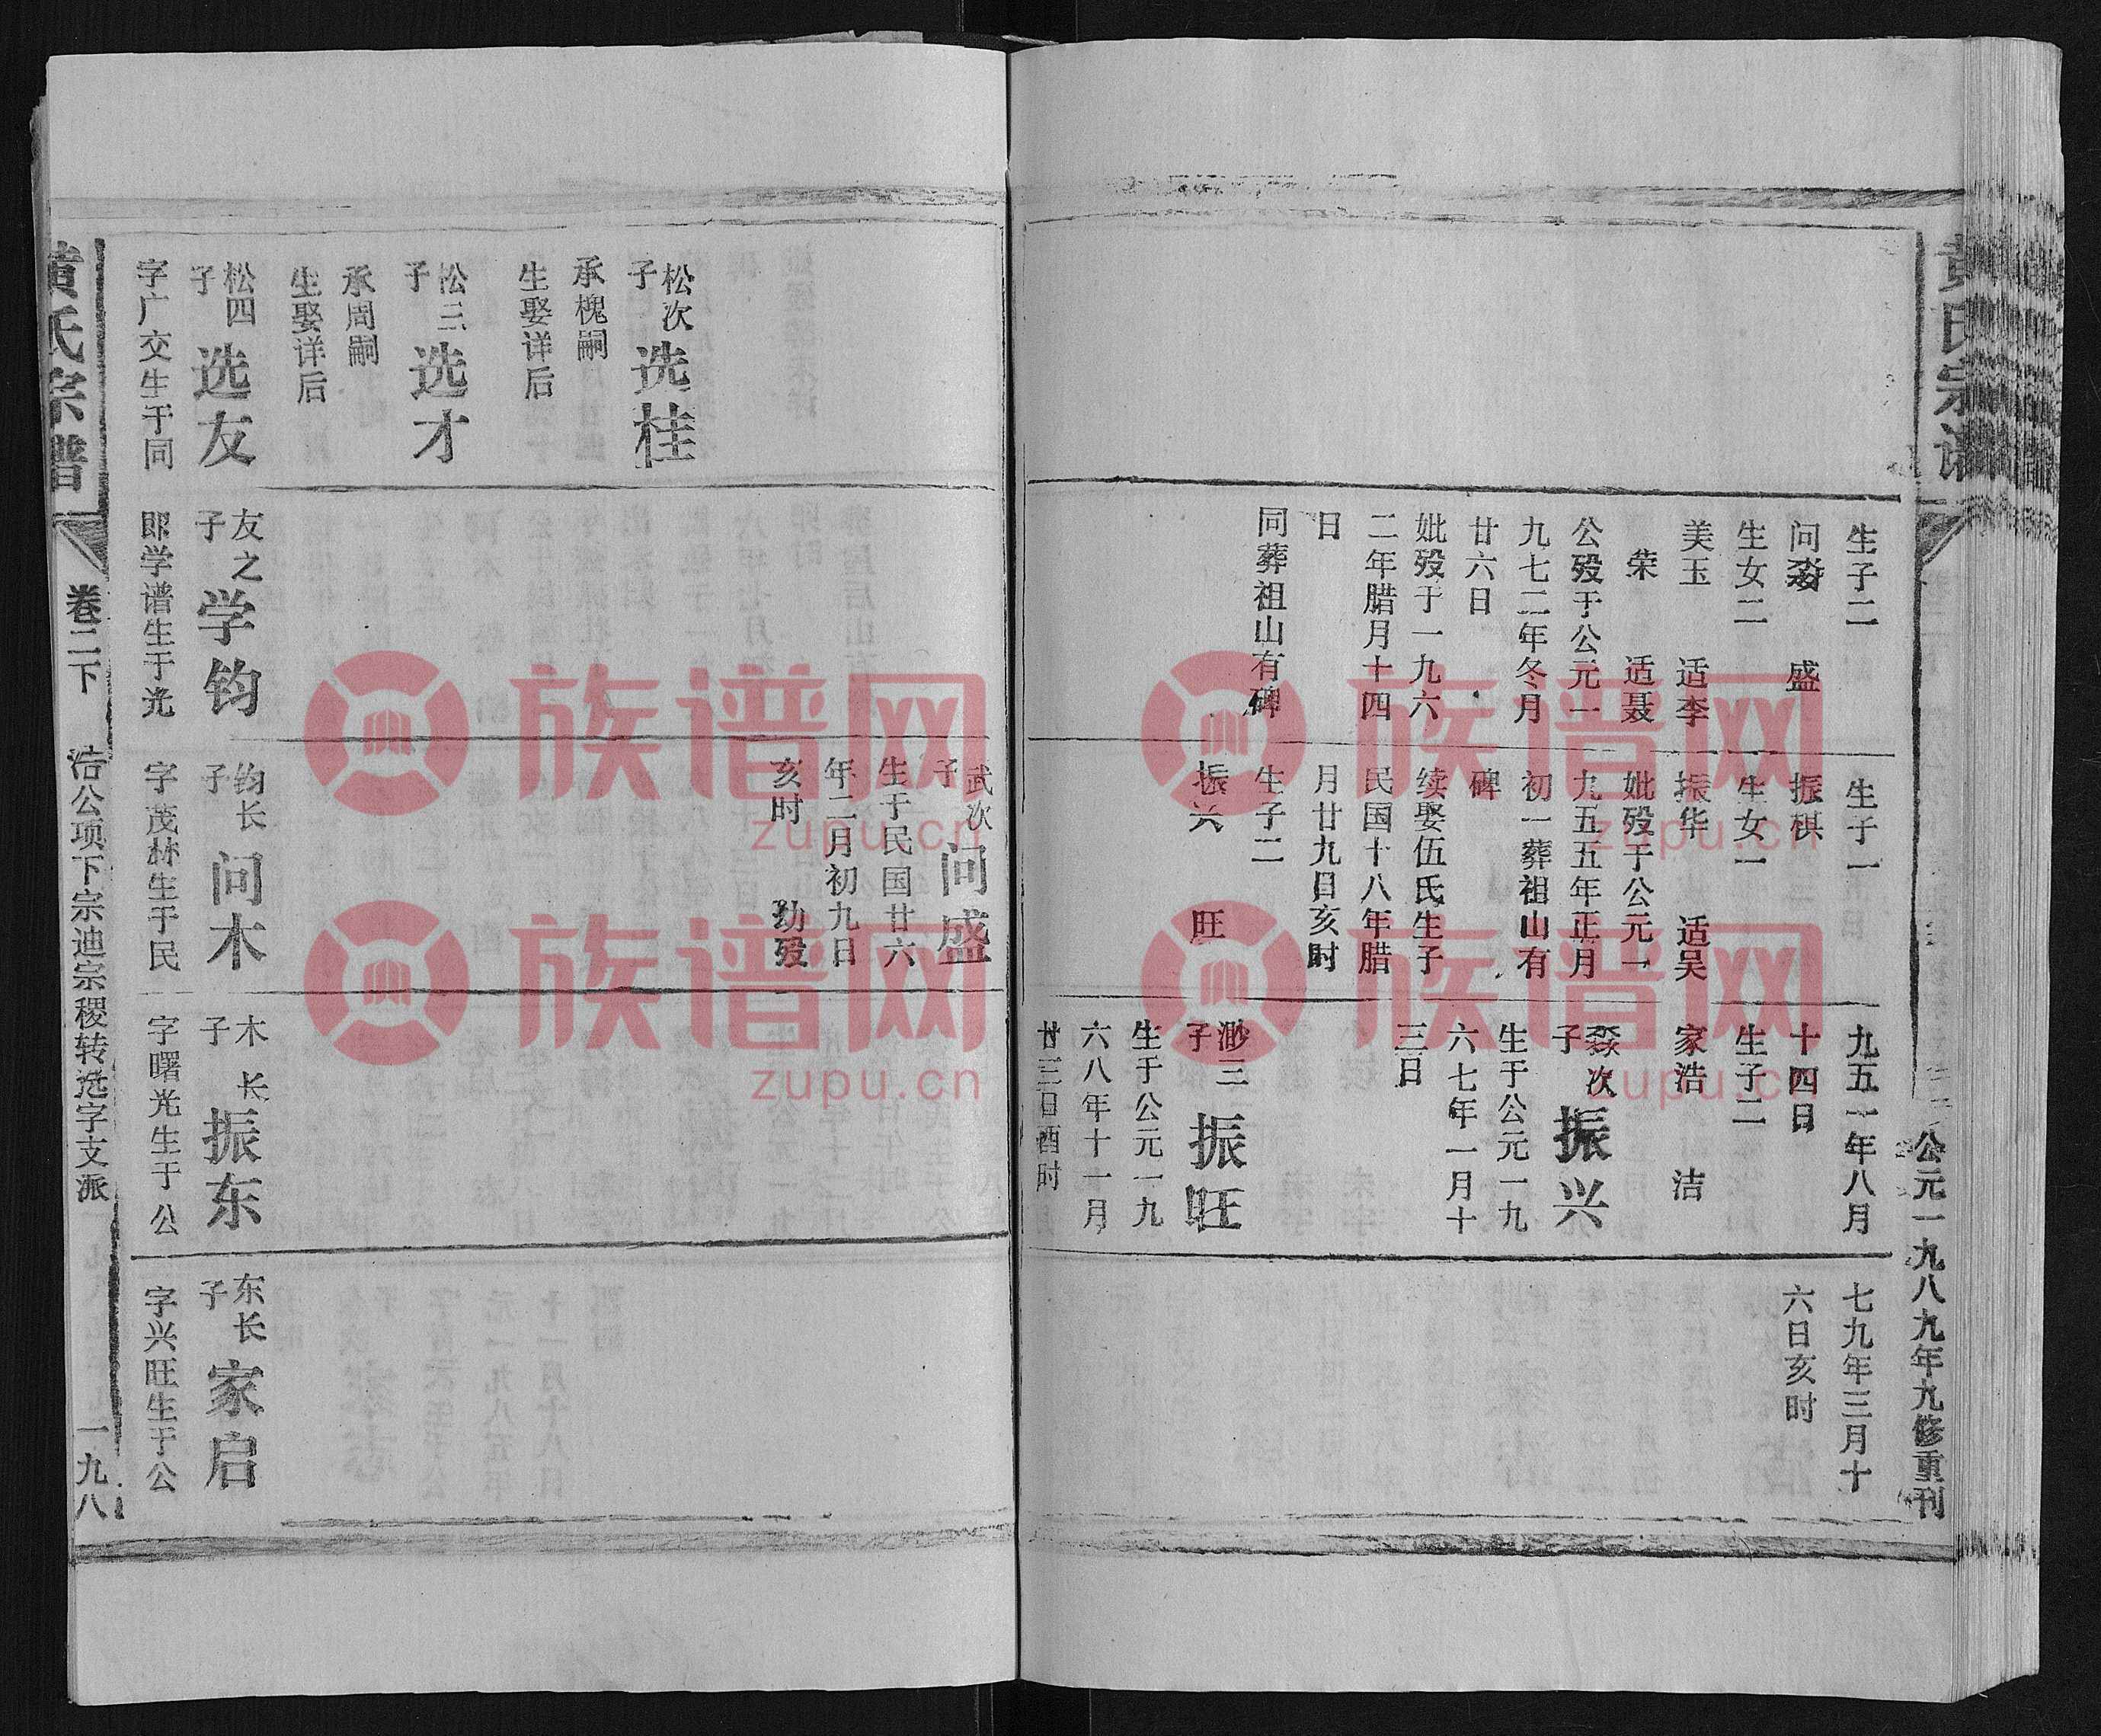 黄氏宗谱
公元一九八九年九修重刊
生子二
问淼 盛
生女二
美玉 适李
荣 适聂
公殁于公元一
九七二年冬月
廿六日
妣殁于一九六
二年腊月十四
日
同葬祖山有碑
生子一
振棋
生女一
振华 适吴
妣殁于公元一
九五五年正月
初一葬祖山有
碑
续娶伍氏生子
民国十八年腊
月廿九日亥时
生子二
振兴 旺
九五一年八月
十四日
生子二
家浩 洁
淼次
子
振兴
生于公元一九
六七年一月十
三日
三
子
振旺
生于公元一九
六八年十一月
廿三日酉时
七九年三月十
六日亥时
松次
子
选桂
承槐嗣
生娶详后
松三
子
选才
承周嗣
生娶详后
松四
子
选友
字广交生于同
友之
子
学钧
即学谱生于光
武次
子
问盛
生于民国廿六
年二月初九日
亥时 幼殁
钧长
子
问木
字茂林生于民
木长
子
振东
字曙光生于公
东长
子
家启
字兴旺生于公
黄氏宗谱
卷二下
浩公项下宗迪宗稷转选字支派
一九八
族谱网
zupu.cn
族谱网
zupu.cn
族谱网
zupu.cn
族谱网
zupu.cn